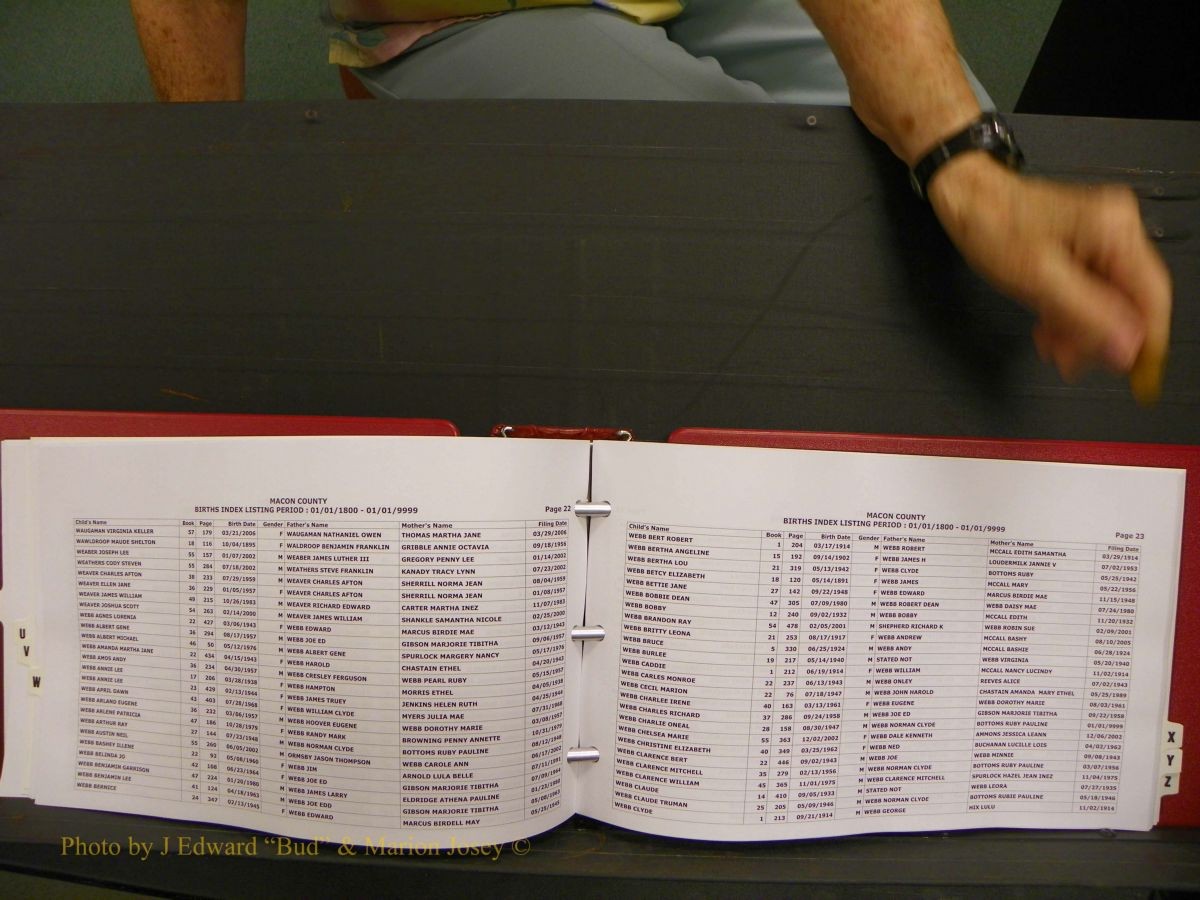 MACON COUNTY
BIRTHS INDEX LISTING PERIOD : 01/01/1800 - 01/01/9999 Page 22
Child's Name Book Page Birth Date Gender Father's Name Mother's Name Filing Date
WAUGAMAN VIRGINIA KELLER 57 179 03/21/2006 F WAUGAMAN NATHANIEL OWEN THOMAS MARTHA JANE 03/29/2006
WAWLDROOP MAUDE SHELTON 18 116 10/04/1895 F WALDROOP BENJAMIN FRANKLIN GRIBBLE ANNIE OCTAVIA 09/18/1956
WEABER JOSEPH LEE 55 157 01/07/2002 M WEABER JAMES LUTHER III GREGORY PENNY LEE 01/14/2002
WEATHERS CODY STEVEN 55 284 07/18/2002 M WEATHERS STEVE FRANKLIN KANADY TRACY LYNN 07/23/2002
WEAVER CHARLES AFTON 38 233 07/29/1959 M WEAVER CHARLES AFTON SHERRILL NORMA JEAN 08/04/1959
WEAVER ELLEN JANE 36 229 01/05/1957 F WEAVER CHARLES AFTON SHERRILL NORMA JEAN 01/08/1957
WEAVER JAMES WILLIAM 49 215 10/26/1983 M WEAVER RICHARD EDWARD CARTER MARTHA INEZ 11/07/1983
WEAVER JOSHUA SCOTT 54 263 02/14/2000 M WEAVER JAMES WILLIAM SHANKLE SAMANTHA NICOLE 02/25/2000
WEBB AGNES LORENIA 22 427 03/06/1943 F WEBB EDWARD MARCUS BIRDIE MAE 03/12/1943
WEBB ALBERT GENE 36 294 08/17/1957 M WEBB JOE ED GIBSON MARJORIE TIBITHA 09/06/1957
WEBB ALBERT MICHAEL 46 50 05/12/1976 M WEBB ALBERT GENE SPURLOCK MARGERY NANCY 05/17/1976
WEBB AMANDA MARTHA JANE 22 434 04/15/1943 F WEBB HAROLD CHASTAIN ETHEL 04/20/1943
WEBB AMOS ANDY 36 234 04/30/1957 M WEBB CRESLEY FERGUSON WEBB PEARL RUBY 05/15/1957
WEBB ANNIE LEE 17 206 03/28/1938 F WEBB HAMPTON MORRIS ETHEL 04/05/1938
WEBB ANNIE LEE 23 429 02/13/1944 F WEBB JAMES TRUEY JENKINS HELEN RUTH 04/25/1944
WEBB APRIL DAWN 43 403 07/28/1968 F WEBB WILLIAM CLYDE MYERS JULIA MAE 07/31/1968
WEBB ARLAND EUGENE 36 232 03/06/1957 F WEBB RANDY MARK WEBB DOROTHY MARIE 03/08/1957
WEBB ARLENE PATRICIA 47 186 10/28/1979 M WEBB HOOVER EUGENE BROWNING PENNY ANNETTE 10/31/1979
WEBB ARTHUR RAY 27 144 07/23/1948 M WEBB NORMAN CLYDE BOTTOMS RUBY PAULINE 08/12/1948
WEBB AUSTIN NEIL 55 260 06/05/2002 M ORMSBY JASON THOMPSON WEBB CAROLE ANN 06/17/2002
WEBB BASHEY ILLENE 22 92 05/08/1960 F WEBB JIM ARNOLD LULA BELLE
WEBB BELINDA JO 42 188 06/23/1964 F WEBB JOE ED GIBSON MARJORIE TIBITHA 07/09/1964
WEBB BENJAMIN GARRISON 47 224 01/20/1980 M WEBB JAMES LARRY ELDRIDGE ATHENA PAULINE 01/23/1980
WEBB BENJAMIN LEE 41 124 04/18/1963 M WEBB JOE EDD GIBSON MARJORIE TIBITHA 05/08/1963
WEBB BERNICE 24 347 02/13/1945 F WEBB EDWARD MARCUS BIRDELL MAY 05/25/1945
MACON COUNTY
BIRTHS INDEX LISTING PERIOD : 01/01/1800 - 01/01/9999 Page 23
Child's Name Book Page Birth Date Gender Father's Name Mother's Name Filing Date
WEBB BERT ROBERT 1 204 03/17/1914 M WEBB ROBERT MCCALL EDITH SAMANTHA 03/29/1914
WEBB BERTHA ANGELINE 15 192 09/14/1902 F WEBB JAMES H LOUDERMILK JANNIE V 07/02/1953
WEBB BERTHA LOU 21 319 05/13/1942 F WEBB CLYDE BOTTOMS RUBY 05/25/1942
WEBB BETCY ELIZABETH 18 120 05/14/1891 F WEBB JAMES MCCALL MARY 05/22/1956
WEBB BETTIE JANE 27 142 09/22/1948 F MARCUS BIRDIE MAE 11/15/1948
WEBB BOBBIE DEAN 47 305 07/09/1980 M WEBB ROBERT DEAN WEBB DAISY MAE 07/24/1980
WEBB BOBBY 12 240 09/02/1932 M WEBB BOBBY MCCALL EDITH 11/20/1932
WEBB BRANDON RAY 54 478 02/05/2001 M SHEPHERD RICHARD K WEBB ROBIN SUE 02/09/2001
WEBB BRITTY LEONA 21 253 08/17/1917 F WEBB ANDREW MCCALL BASHY 08/10/2005
WEBB BRUCE 5 330 06/25/1924 M WEBB ANDY MCCALL BASHIE 06/28/1924
WEBB BURLEE 19 217 05/14/1940 M STATED NOT WEBB VIRGINIA 05/20/1940
WEBB CADDIE 1 212 06/19/1914 F WEBB WILLIAM MCCALL NANCY LUCINDY 11/02/1914
WEBB CARLES MONROE 22 237 06/13/1943 M WEBB ONLEY REEVES ALICE 07/02/1943
WEBB CECIL MARION 22 76 07/18/1947 M WEBB JOHN HAROLD CHASTAIN AMANDA MARY ETHEL 05/25/1989
WEBB CHARLEE IRENE 40 163 03/13/1961 F WEBB EUGENE WEBB DOROTHY MARIE 08/03/1961
WEBB CHARLES RICHARD 37 286 09/24/1958 M WEBB JOE ED GIBSON MARJORIE TIBITHA 09/22/1958
WEBB CHARLIE ONEAL 28 158 08/30/1947 M WEBB NORMAN CLYDE BOTTOMS RUBY PAULINE 01/01/9999
WEBB CHELSEA MARIE 55 363 12/02/2002 F WEBB DALE KENNETH AMMONS JESSICA LEANN 12/06/2002
WEBB CHRISTINE ELIZABETH 40 349 03/25/1962 F WEBB NED BUCHANAN LUCILLE LOIS 04/02/1962
WEBB CLARENCE BERT 22 446 09/02/1943 M WEBB JOE WEBB MINNIE 09/08/1943
WEBB CLARENCE MITCHELL 35 279 02/13/1956 M WEBB NORMAN CLYDE BOTTOMS RUBY PAULINE 03/07/1956
WEBB CLARENCE WILLIAM 45 365 11/01/1975 M WEBB CLARENCE MITCHELL SPURLOCK HAZEL JEAN INEZ 11/04/1975
WEBB CLAUDE 14 410 09/05/1933 M STATED NOT WEBB LEORA 07/27/1935
WEBB CLAUDE TRUMAN 25 205 05/09/1946 M WEBB NORMAN CLYDE BOTTOMS RUBIE PAULINE 05/18/1946
WEBB CLYDE 1 213 09/21/1914 M WEBB GEORGE HIX LULU 11/02/1914
U
V
W
X
Y
Z
Photo by J Edward “Bud” & Marion Josey ©